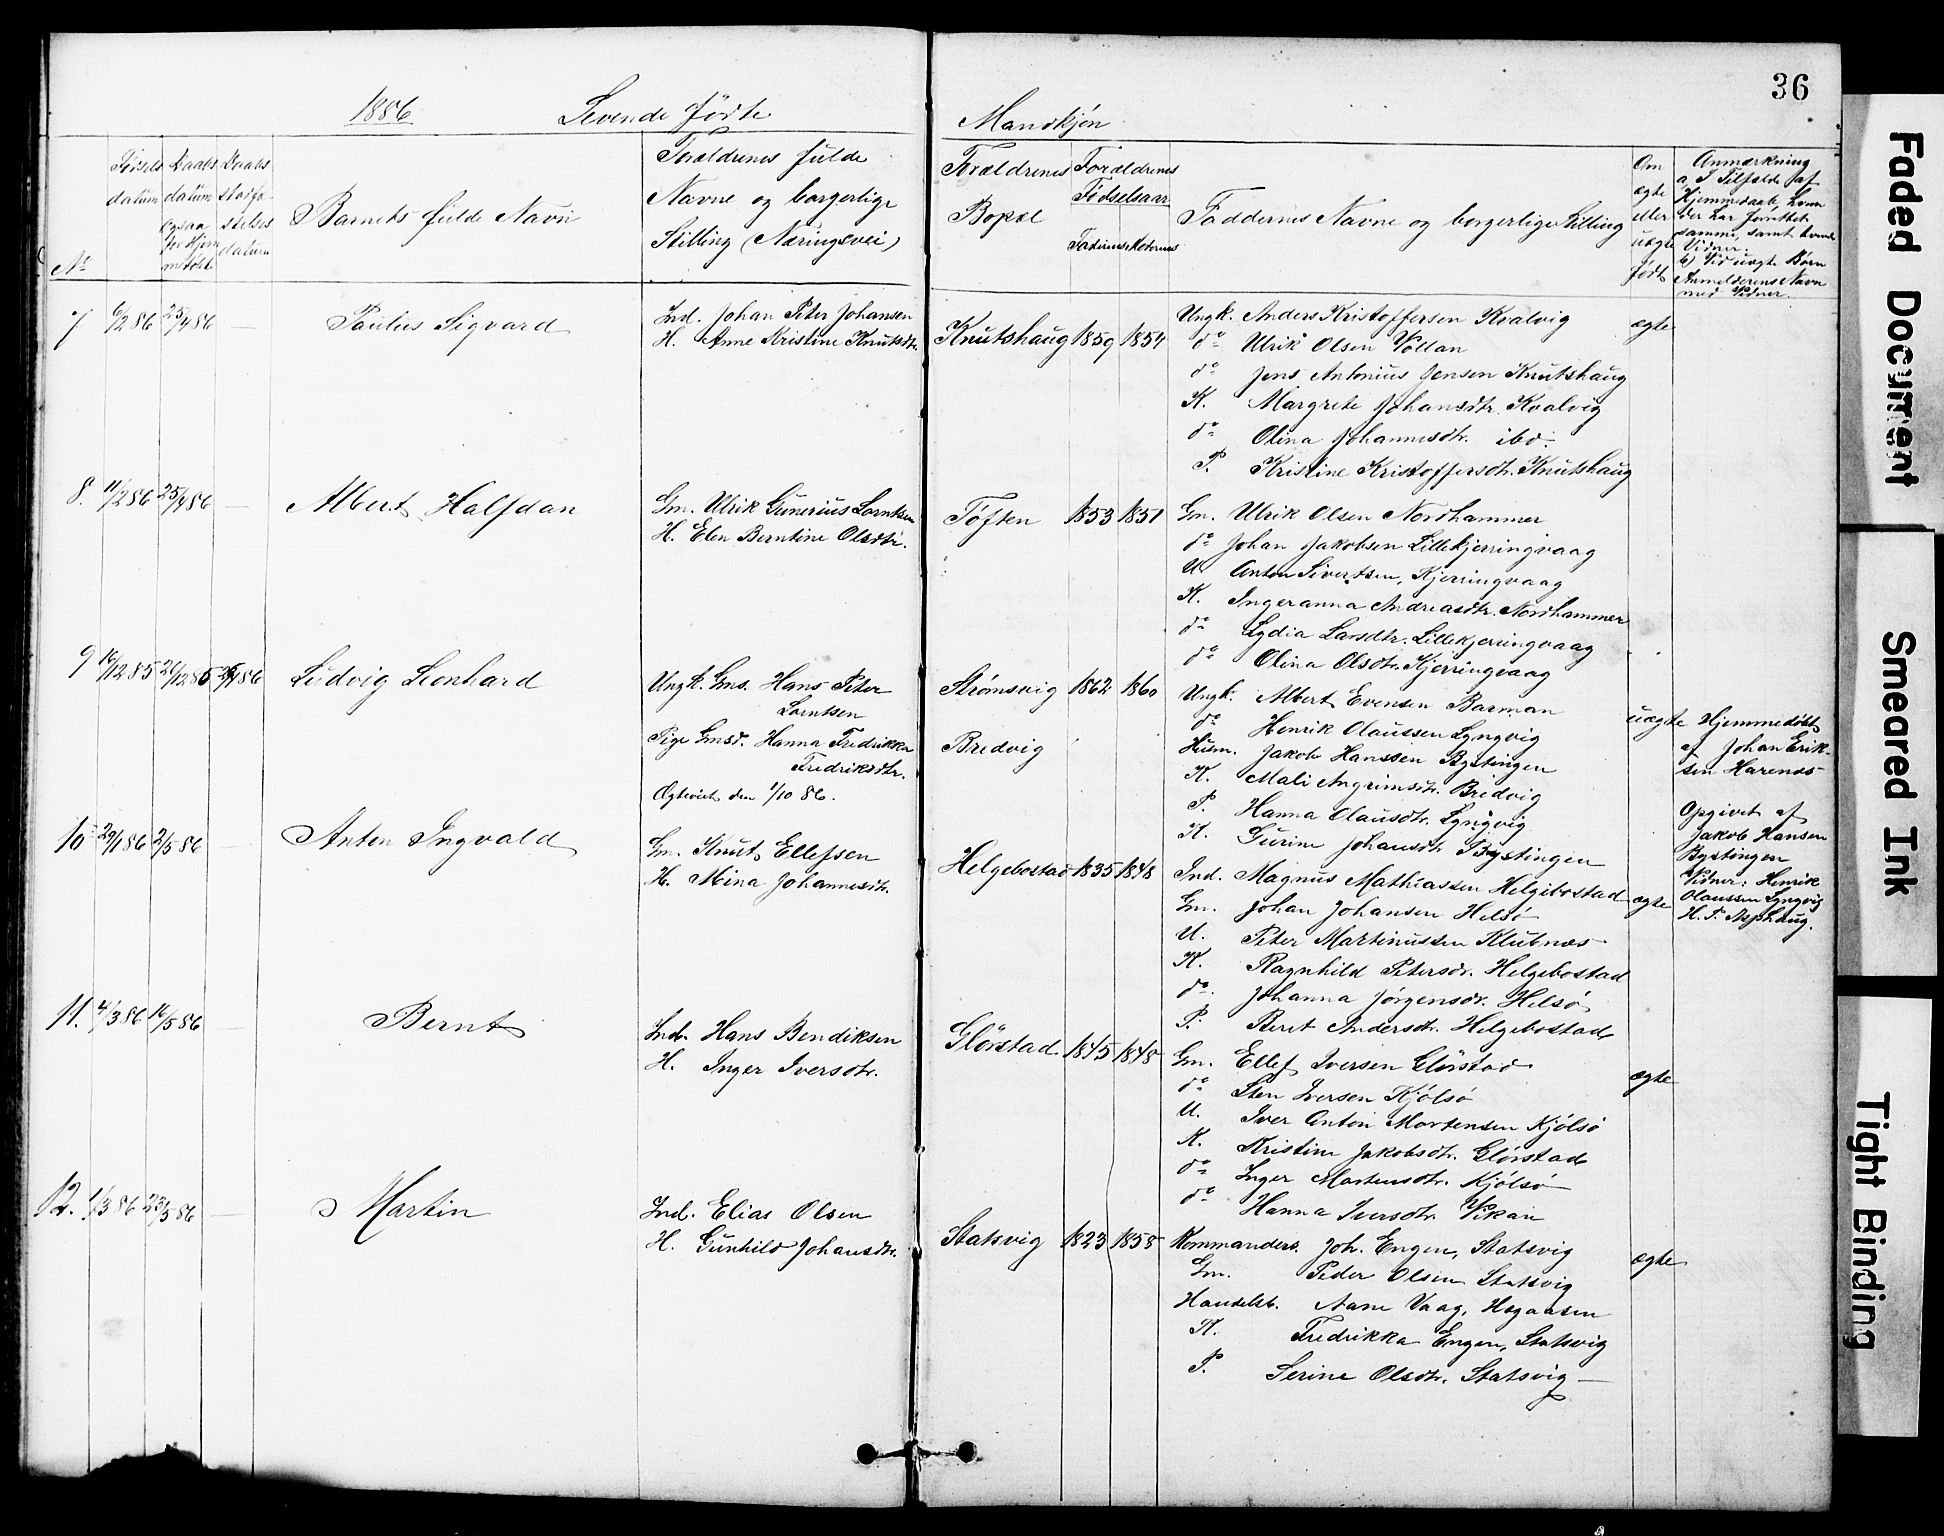 36
1886 Levende fødte Mandkjøn
No
Fødsels datum
Daabs datum ogsaa for Hjem medøbt
Daabs stadfæstelses datum
Barnets fulde Navn
Forældrenes fulde
Navne og borgerlige
Stilling (Næringsvei)
Forældrenes
Bopæl
Forældrenes
Fødselsaar
Faderens Moderens
Faddernes Navne og borgerlige Stilling
Om
ægte
eller
uægte
født
Anmærkning
a, I Tilfælde af
Hjemmedaab, hvem
der har forrettet
samme, samt hvem
Vidner.
b) Ved uægte Børn
Anmelderens Navn
med Vidner.
7 6/2 86 25/4 86 — Paulus Sigvard
Ind. Johan Peter Johansen
H. Anne Kristine Knutsdtr.
Knutshaug 1859 1854
Ungk. Anders Kristoffersen Kvalvig
do Ulrik Olsen Vollan
do Jens Antonius Jensen Knutshaug
K. Margrete Johansdtr. Kvalvig
do Olina Johannesdtr. ibd.
P. Kristine Kristoffersdtr. Knutshaug
ægte
8. 11/2 86 25/4 86 — Albert Halfdan
Gm. Ulrik Gunerius Lorntsen
H. Elen Berntine Olsdtr.
Tøften 1853 1851
Gm. Ulrik Olsen Nordhammer
do Johan Jakobsen Lillekjerringvaag
U. Anton Sivertsen, Kjerringvaag
K. Ingeranna Andreasdtr. Nordhammer
do Lydia Larsdtr. Lillekjerringvaag
do Olina Olsdtr. Kjerringvaag
9 16/12 85 26/12 85 25/4 86 Ludvig Leonhard
Ungk. Gms. Hans Peter
Lorntsen
Pige Gmsd. Hanna Fredrikka
Fredriksdtr.
Ægteviet den 1/10 86.
Strømsvig 1862 1860
Bredvig
Ungk. Albert Evensen Barman
do Henrik Olaussen Lyngvig
Husm. Jakob Hanssen Bystingen
K. Mali Angrimsdtr. Bredvig
P. Hanna Olausdtr. Lyngvig
K. Gurine Johansdtr Bystingen
uægte
Hjemmedøbt
af Johan Erik-
sen Harenæs
Opgivet af
Jakob Hansen
Bystingen
Vidner: Henrik
Olaussen Lyngvig
H. P. Asphaug.
10 29/1 86 2/5 86 Anton Ingvald
Gm. Knut Ellefsen
H. Mina Johannesdtr.
Helgebostad 1835 1848
Ind. Magnus Mathiassen Helgebostad
Gm. Johan Johansen Helsø
U. Peter Martinussen Klubnæs
K. Ragnhild Petersdr. Helgebostad
do Johanna Jørgensdr. Helsø
P. Beret Andersdtr. Helgebostad
ægte
11. 4/3 86 16/5 86 — Bernt
Ind. Hans Bendiksen
H. Inger Iversdtr.
Glørstad 1845 1848
Gm. Ellef Iversen Glørstad
do Sten Iversen Kjølsø
U. Iver Anton Mortensen Kjølsø
K. Kristine Jakobsdtr. Glørstad
do Inger Mortensdtr. Kjølsø
do Hanna Iversdtr. Vikan
ægte
12. 1/3 86 23/5 86 — Martin
Ind. Elias Olsen
H. Gunhild Johansdtr.
Statsvig 1823 1858
Kommanders. Joh. Engen, Statsvig
Gm. Peder Olsen Statsvig
Handelsb. Aane Vaag, Hogaasen
K. Fredrikka Engen, Statsvig
P. Serine Olsdtr. Statsvig
ægte
Faded Document
Smeared Ink
Tight Binding